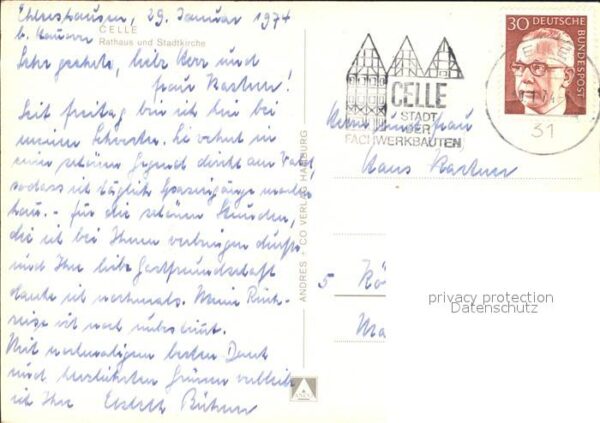 Ehlershausen, 29. Januar 1974
b. Hannover
CELLE
Rathaus und Stadtkirche
Sehr geehrte, liebe Herr und
Frau Kastner!
Seit Freitag bin ich hier bei
meiner Schwester. Sie wohnt in
einer schönen Gegend direkt am Wald,
sodass ich täglich Spaziergänge machen
kann. - Für die schönen Stunden,
die ich bei Ihnen verbringen durfte
und Ihre liebe Gastfreundschaft
danke ich nochmals. Meine Rück-
reise ist noch unbestimmt.
Mit nochmaligem besten Dank
und herzlichsten Grüssen verbleibe
ich Ihre
ANDRES + CO VERLAG HAMBURG
ANDRES
CELLE
STADT
DER
FACHWERKBAUTEN
30 DEUTSCHE
BUNDESPOST
31
Herrn und Frau
Hans Kastner
5 Kö
privacy protection
Datenschutz